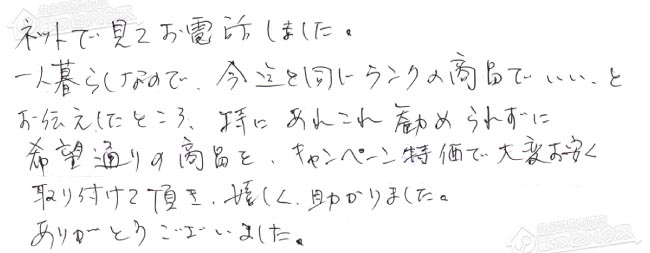 ネットで見てお電話しました。
一人暮らしなので、今迄と同じランクの商品でいい、と
お伝えしたところ、特にあれこれ勧められずに
希望通りの商品を、キャンペーン特価で大変お安く
取り付けて頂き、嬉しく、助かりました。
ありがとうございました。